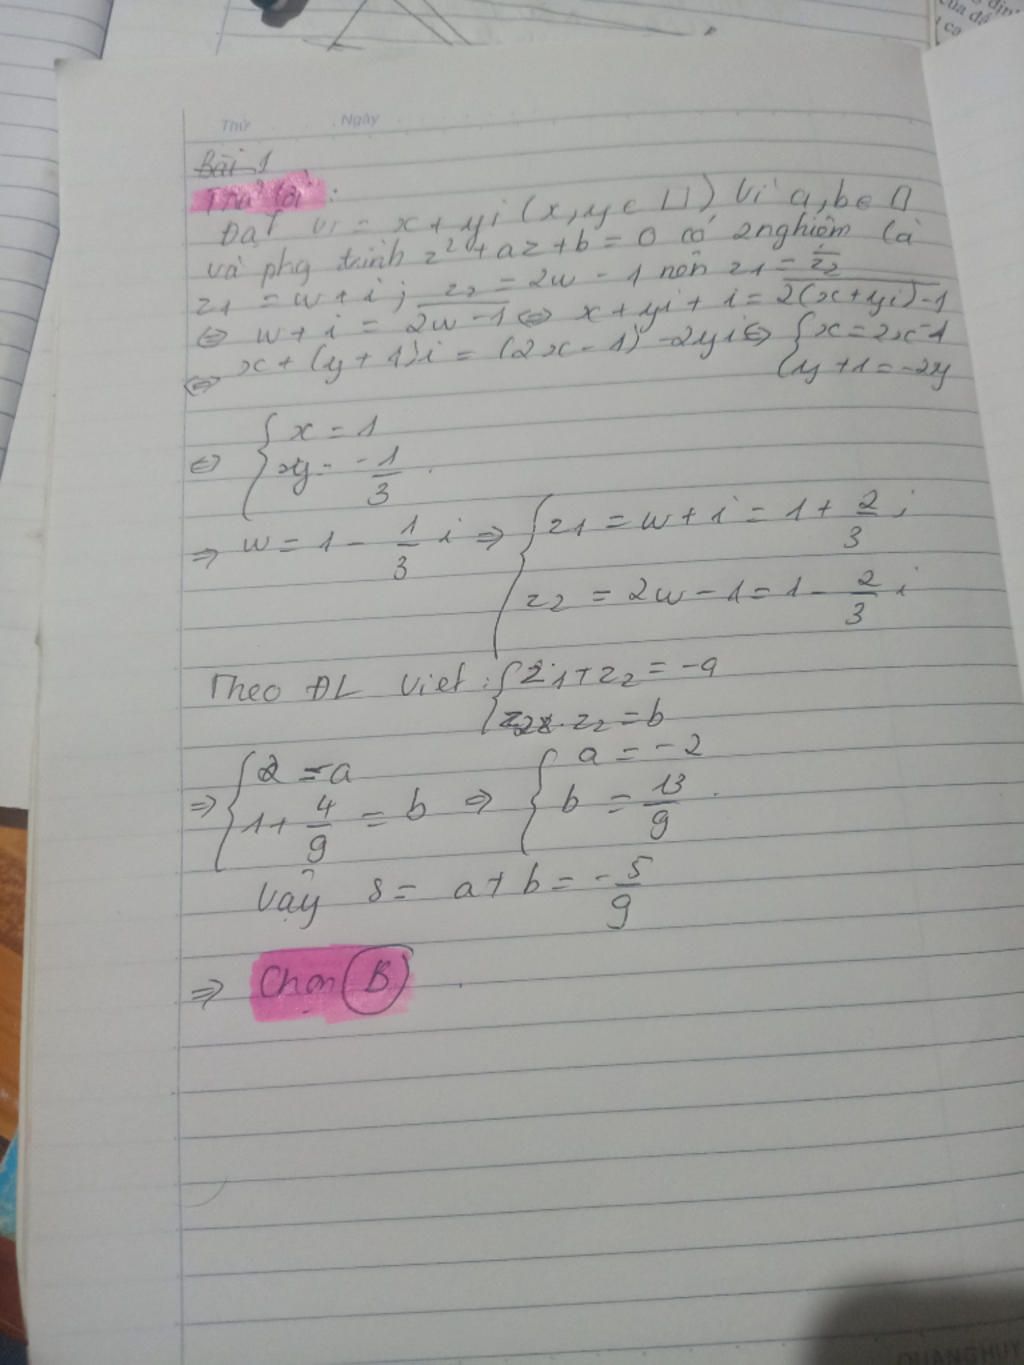 của đồ
Thứ Ngày
Bài 1
Trả lời:
Đặt w = x + yi (x, y ∈ ⊔) Vì a, b ∈ ⊓
và phg trình z² + az + b = 0 có 2 nghiệm là
z1 = w + i; z2 = 2w - 1 nên z1 = z̅2
⇔ w + i = \overline{2w - 1} ⇔ x + yi + i = \overline{2(x + yi) - 1}
⇔ x + (y + 1)i = (2x - 1) - 2yi ⇔ { x = 2x - 1
{ y + 1 = -2y
⇔ { x = 1
{ y = -1/3.
⇒ w = 1 - 1/3 i ⇒ { z1 = w + i = 1 + 2/3 i
{ z2 = 2w - 1 = 1 - 2/3 i
Theo ĐL Viet: { z1 + z2 = -a
{ z1 . z2 = b
⇒ { 2 = -a
{ 1 + 4/9 = b ⇒ { a = -2
{ b = 13/9.
Vậy S = a + b = -5/9
⇒ Chọn B.
QUANGHUY